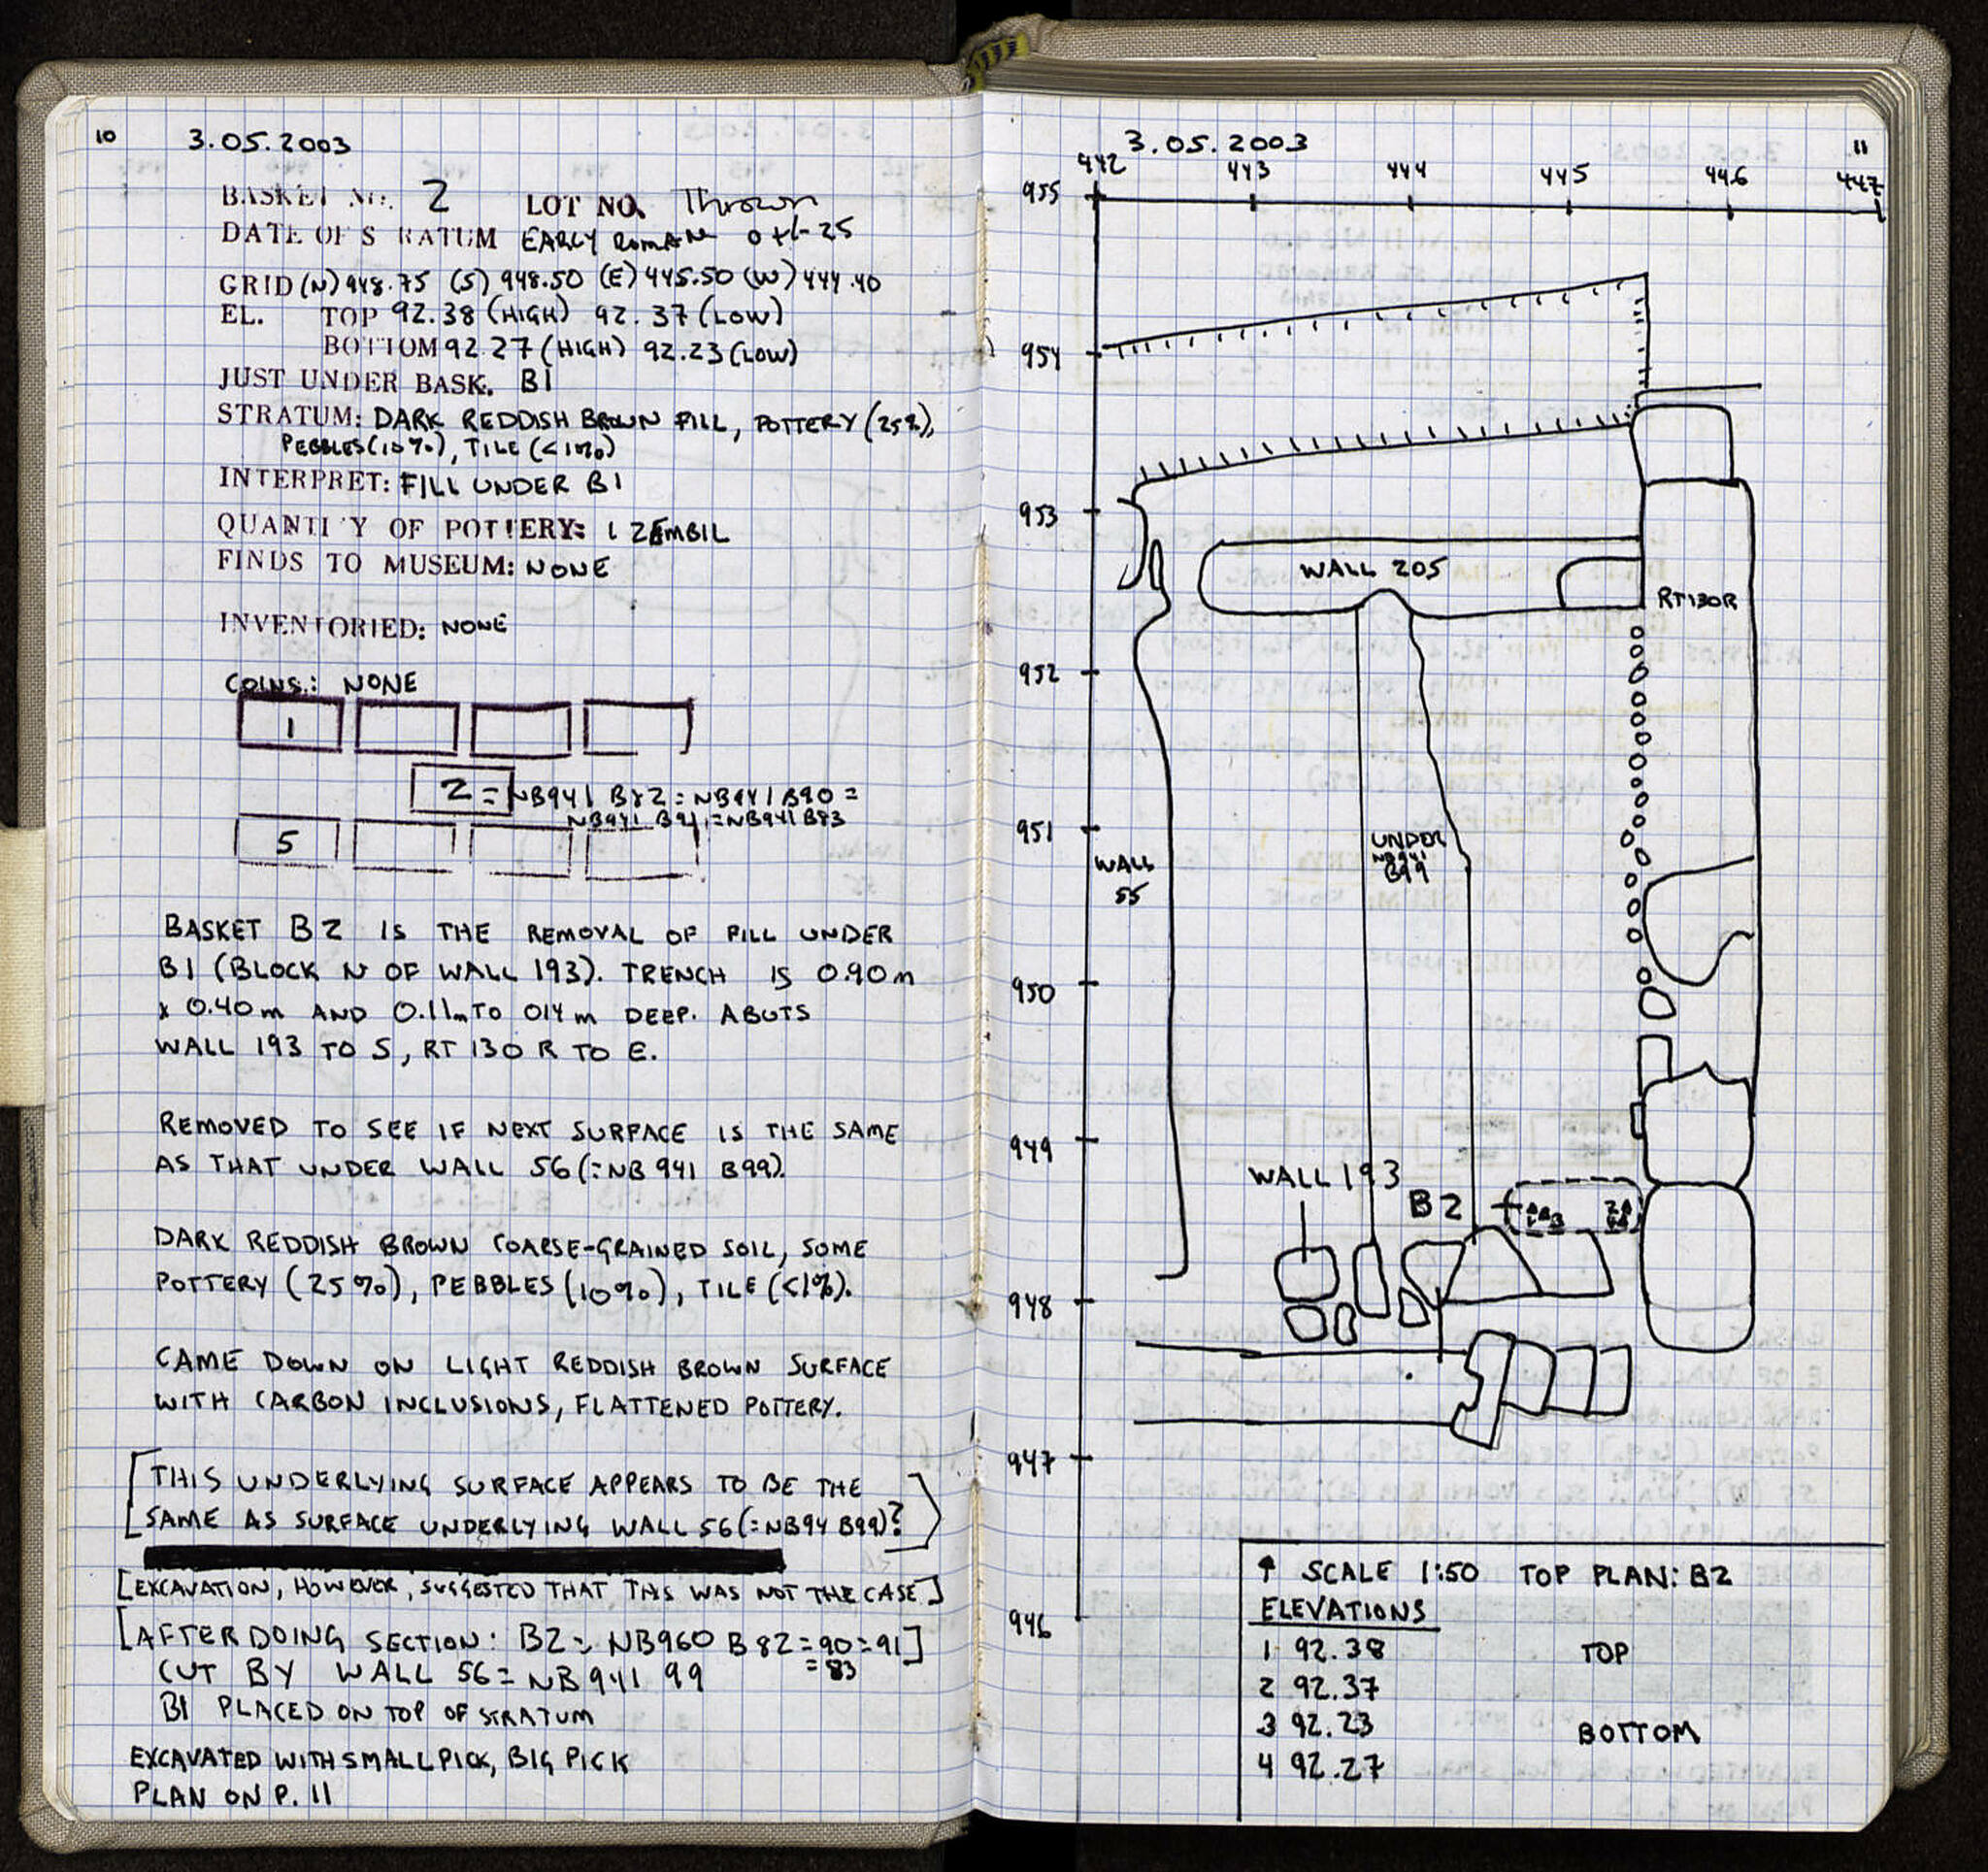 10
3.05.2003
BASKET NO. 2 LOT NO. Thrown
DATE OF S RATUM EARLY ROMAN 0 +/- 25
GRID (N) 948.75 (S) 948.50 (E) 445.50 (W) 444.40
EL. TOP 92.38 (HIGH) 92.37 (LOW)
BOTTOM 92.27 (HIGH) 92.23 (LOW)
JUST UNDER BASK. B1
STRATUM: DARK REDDISH BROWN FILL, POTTERY (25%),
PEBBLES (10%), TILE (<1%)
INTERPRET: FILL UNDER B1
QUANTI Y OF POTTERY: 1 ZEMBIL
FINDS TO MUSEUM: NONE
INVENTORIED: NONE
COINS: NONE
1
2 = NB941 B82 = NB941 B90 =
NB941 B91 = NB941 B83
5
BASKET B2 IS THE REMOVAL OF FILL UNDER
B1 (BLOCK N OF WALL 193). TRENCH IS 0.90m
x 0.40m AND 0.11m TO 014m DEEP. ABUTS
WALL 193 TO S, RT 130 R TO E.
REMOVED TO SEE IF NEXT SURFACE IS THE SAME
AS THAT UNDER WALL 56 (=NB 941 B99).
DARK REDDISH BROWN COARSE-GRAINED SOIL, SOME
POTTERY (25%), PEBBLES (10%), TILE (<1%).
CAME DOWN ON LIGHT REDDISH BROWN SURFACE
WITH CARBON INCLUSIONS, FLATTENED POTTERY.
[THIS UNDERLYING SURFACE APPEARS TO BE THE
SAME AS SURFACE UNDERLYING WALL 56 (=NB94 B99)?]
[EXCAVATION, HOWEVER, SUGGESTED THAT THIS WAS NOT THE CASE]
[AFTER DOING SECTION: B2 = NB960 B82 = 90 = 91]
= 83
CUT BY WALL 56 = NB 941 99
B1 PLACED ON TOP OF STRATUM
EXCAVATED WITH SMALL PICK, BIG PICK
PLAN ON P. 11
3.05.2003
11
442 443 444 445 446 447
955
954
953
WALL 205
RT130R
952
951
UNDER
NB941
B99
WALL
55
950
949
WALL 193
B2
948
947
946
↑ SCALE 1:50 TOP PLAN: B2
ELEVATIONS
1 92.38 TOP
2 92.37
3 92.23 BOTTOM
4 92.27